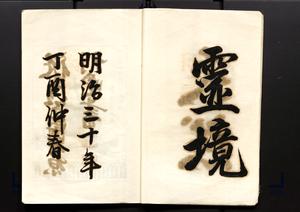 靈境
明治三十年
丁酉仲春